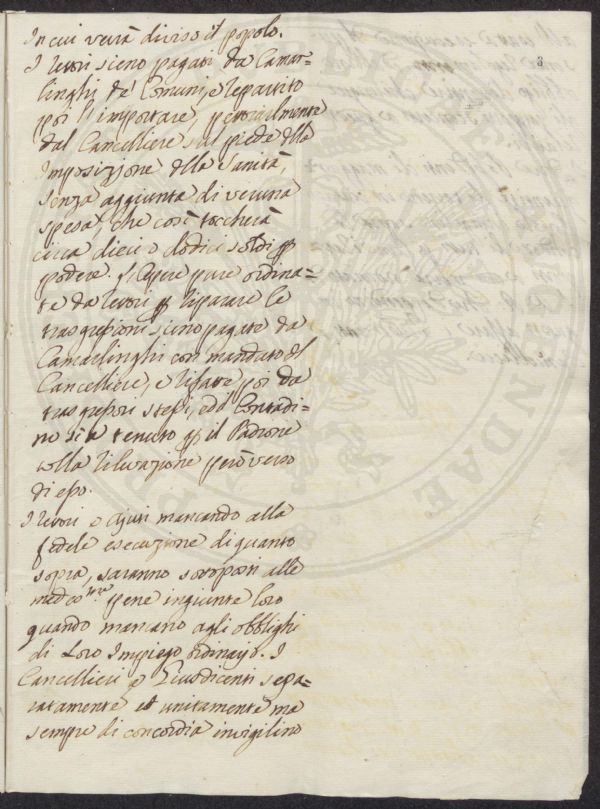 3
In cui verrà diviso il popolo.
I lavori sieno pagati da Camar-
linghi de Comuni, e repartito
poi l'importare, parzialmente
dal Cancelliere sul piede della
Imposizione della Sanità,
senza aggiunta di veruna
spesa, che così toccherà
circa dieci o dodici soldi p
podere. Spese pure ordina-
te da p riparare le
trasgressioni sieno pagate da
Camarlinghi con mandato del
Cancelliere, e rifatte poi da
trasgressori stessi, ed il Contadi-
no sia tenuto p il Padrone
colla rilevazione però verso
di esso.
I e mancando alla
fedele esecuzione di quanto
sopra, saranno sottoposti alle
pene ingiunte loro
quando mancano agli obblighi
di Loro Impiego ordinario. I
Cancellieri e Giusdicenti sepa-
ratamente et unitamente ma
sempre di concordia invigilino